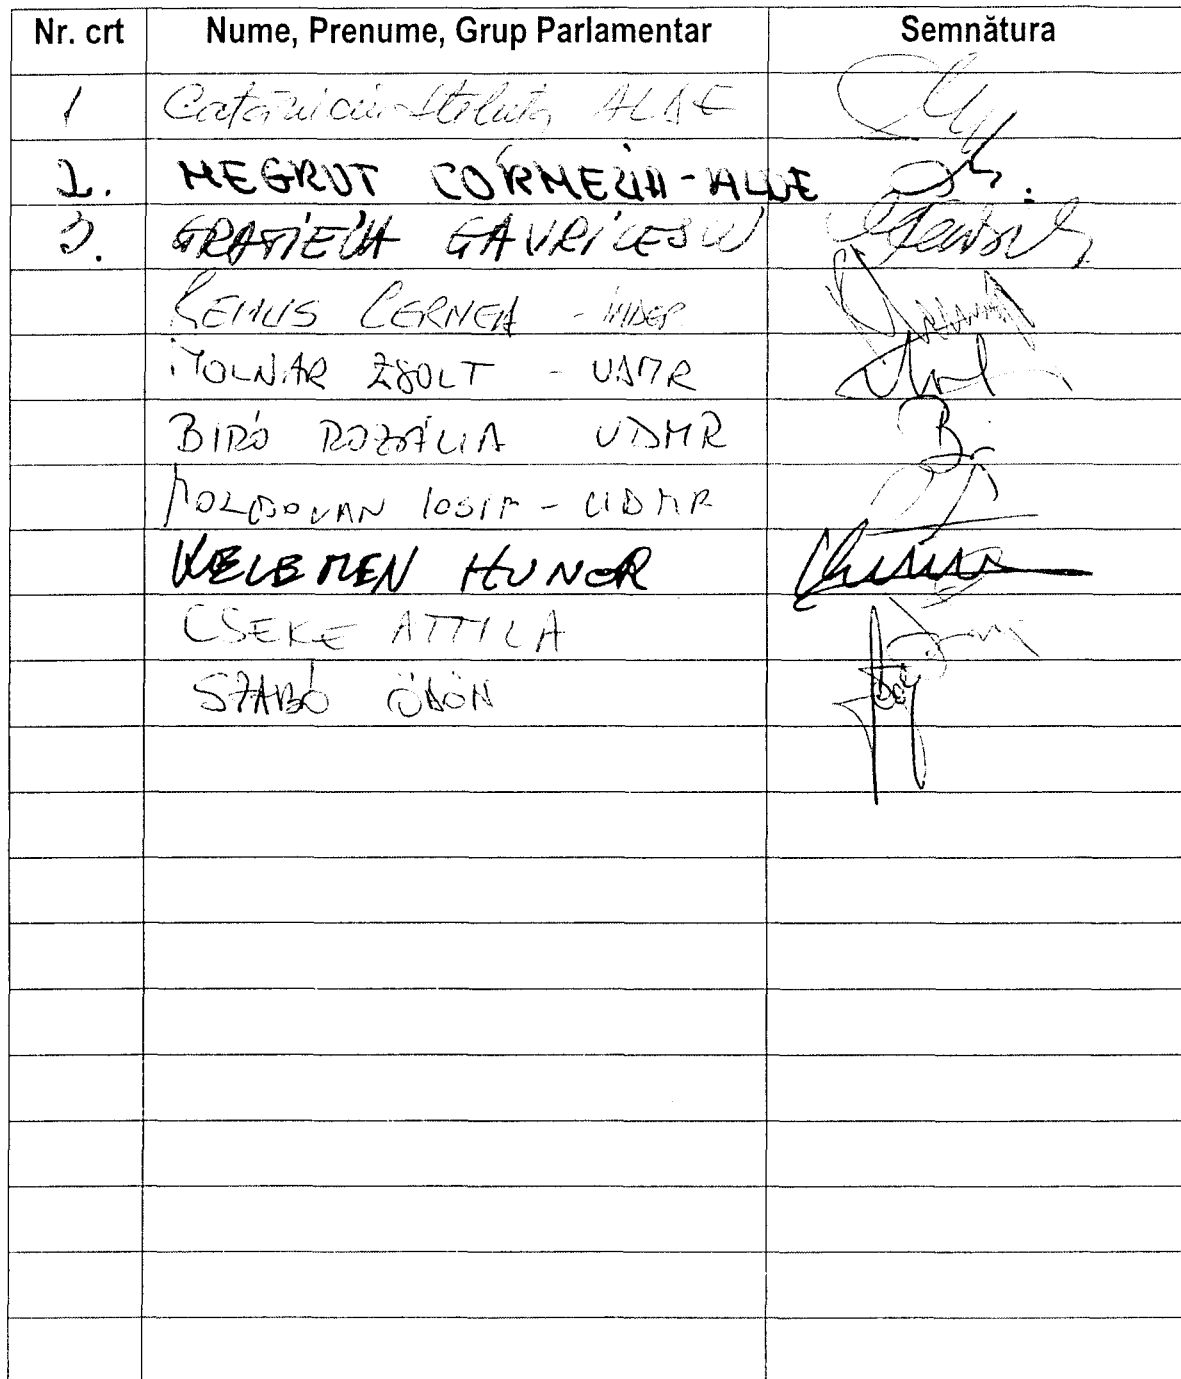 Nr. crt Nume, Prenume, Grup Parlamentar Semnătura
1 Cătăniciu Steluța ALDE
2. NEGRUT CORNELIA - ALDE
3. GRATIELA GAVRILESCU
REMUS CERNEA - INDEP
MOLNAR ZSOLT - UDMR
BIRÓ ROZÁLIA UDMR
MOLDOVAN IOSIF - UDMR
KELEMEN HUNOR
CSEKE ATTILA
SZABÓ ÖDÖN